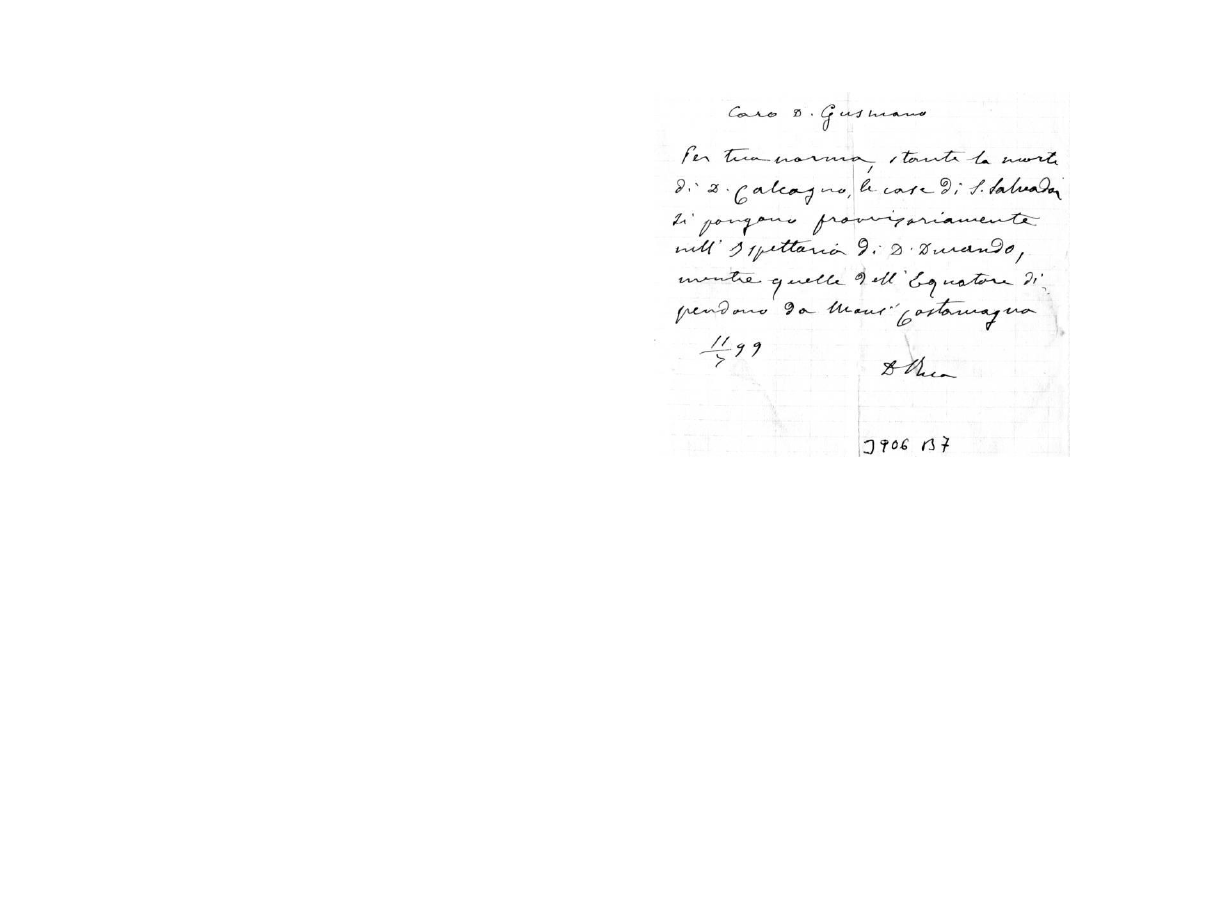 Caro D. Gusmano
Per tua norma, stante la morte
di D. Calcagno, le case di S. Salvador
si pongono provvisoriamente
nell' Ispettoria di D. Durando,
mentre quelle dell' Equatore di-
pendono da Mons' Costamagna
11/7 99
D Rua
J906 B7